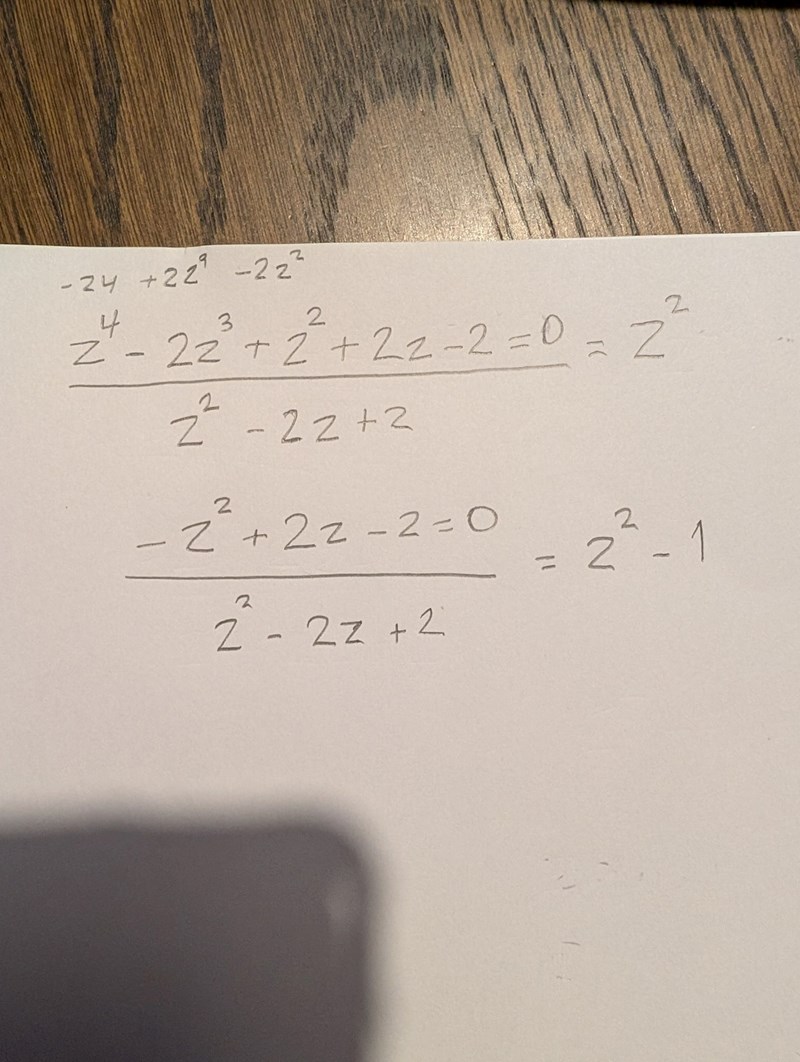 -z4 +2z⁹ -2z²
z⁴ - 2z³ + z² + 2z - 2 = 0 = z²
z² - 2z + 2
-z² + 2z - 2 = 0 = z² - 1
z² - 2z + 2